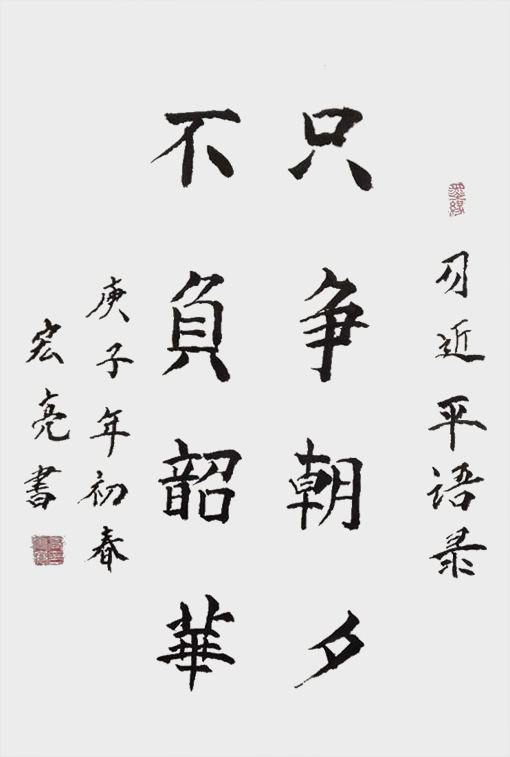 习近平语录
只争朝夕
不负韶華
庚子年初春
宏亮書